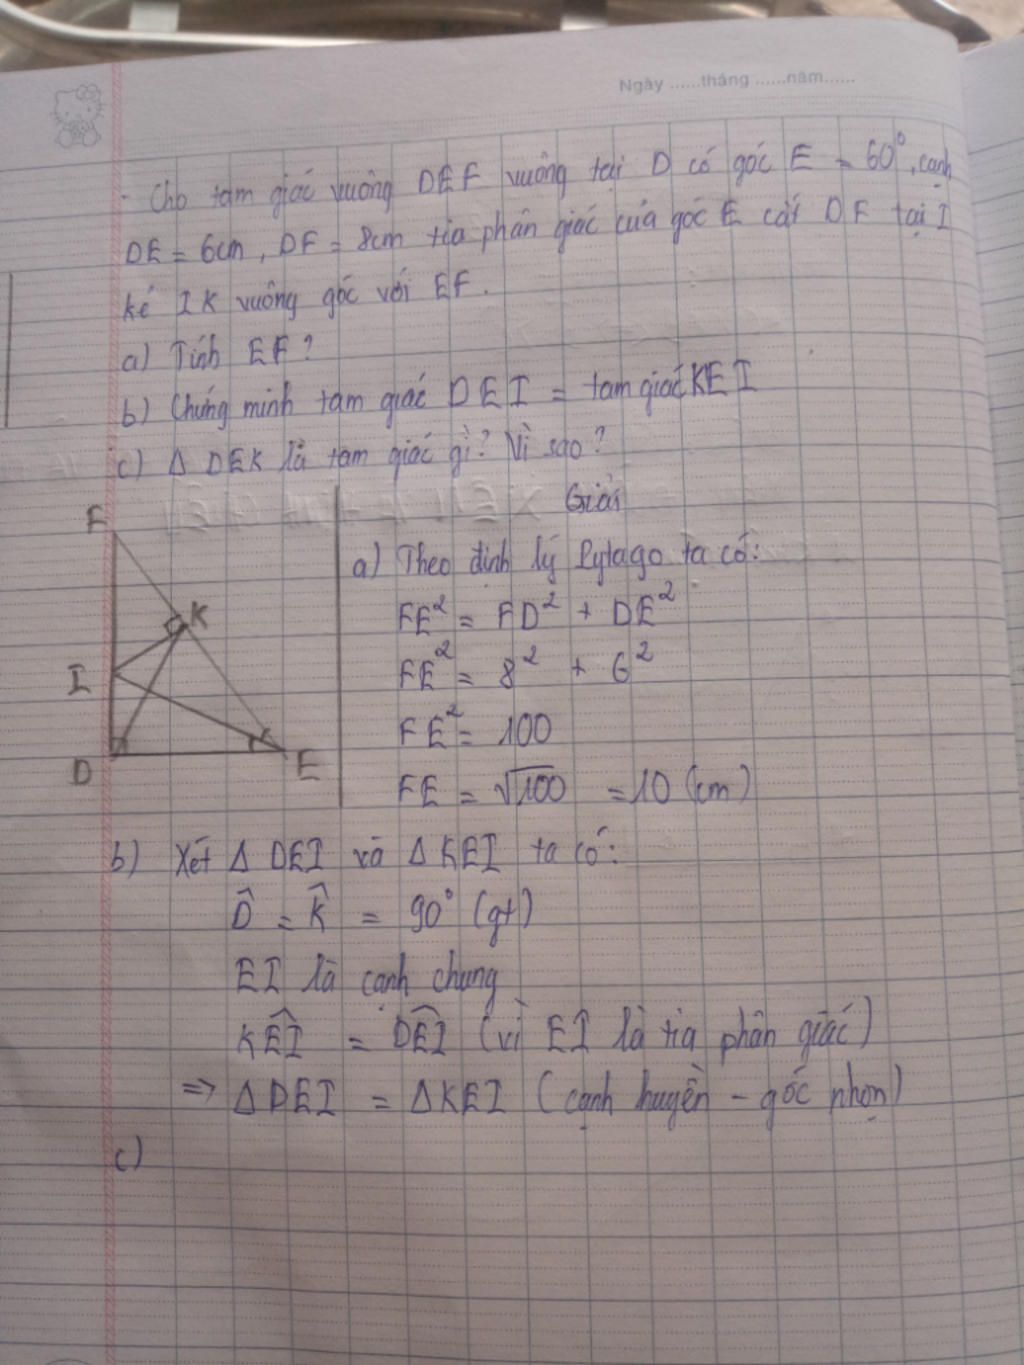 Ngày ......tháng ......năm......
- Cho tam giác vuông DEF vuông tại D có góc E = 60°, cạnh
DE = 6cm, DF = 8cm tia phân giác của góc E cắt DF tại I
kẻ IK vuông góc với EF.
a) Tính EF?
b) Chứng minh tam giác DEI = tam giác KEI
c) Δ DEK là tam giác gì? Vì sao?
Giải
F
K
I
D
E
a) Theo định lý Pytago ta có:
FE² = FD² + DE²
FE² = 8² + 6²
FE² = 100
FE = √100 = 10 (cm)
b) Xét Δ DEI và Δ KEI ta có:
D̂ = K̂ = 90° (gt)
EI là cạnh chung
KÊI = DÊI (vì EI là tia phân giác)
=> Δ DEI = Δ KEI (cạnh huyền - góc nhọn)
c)